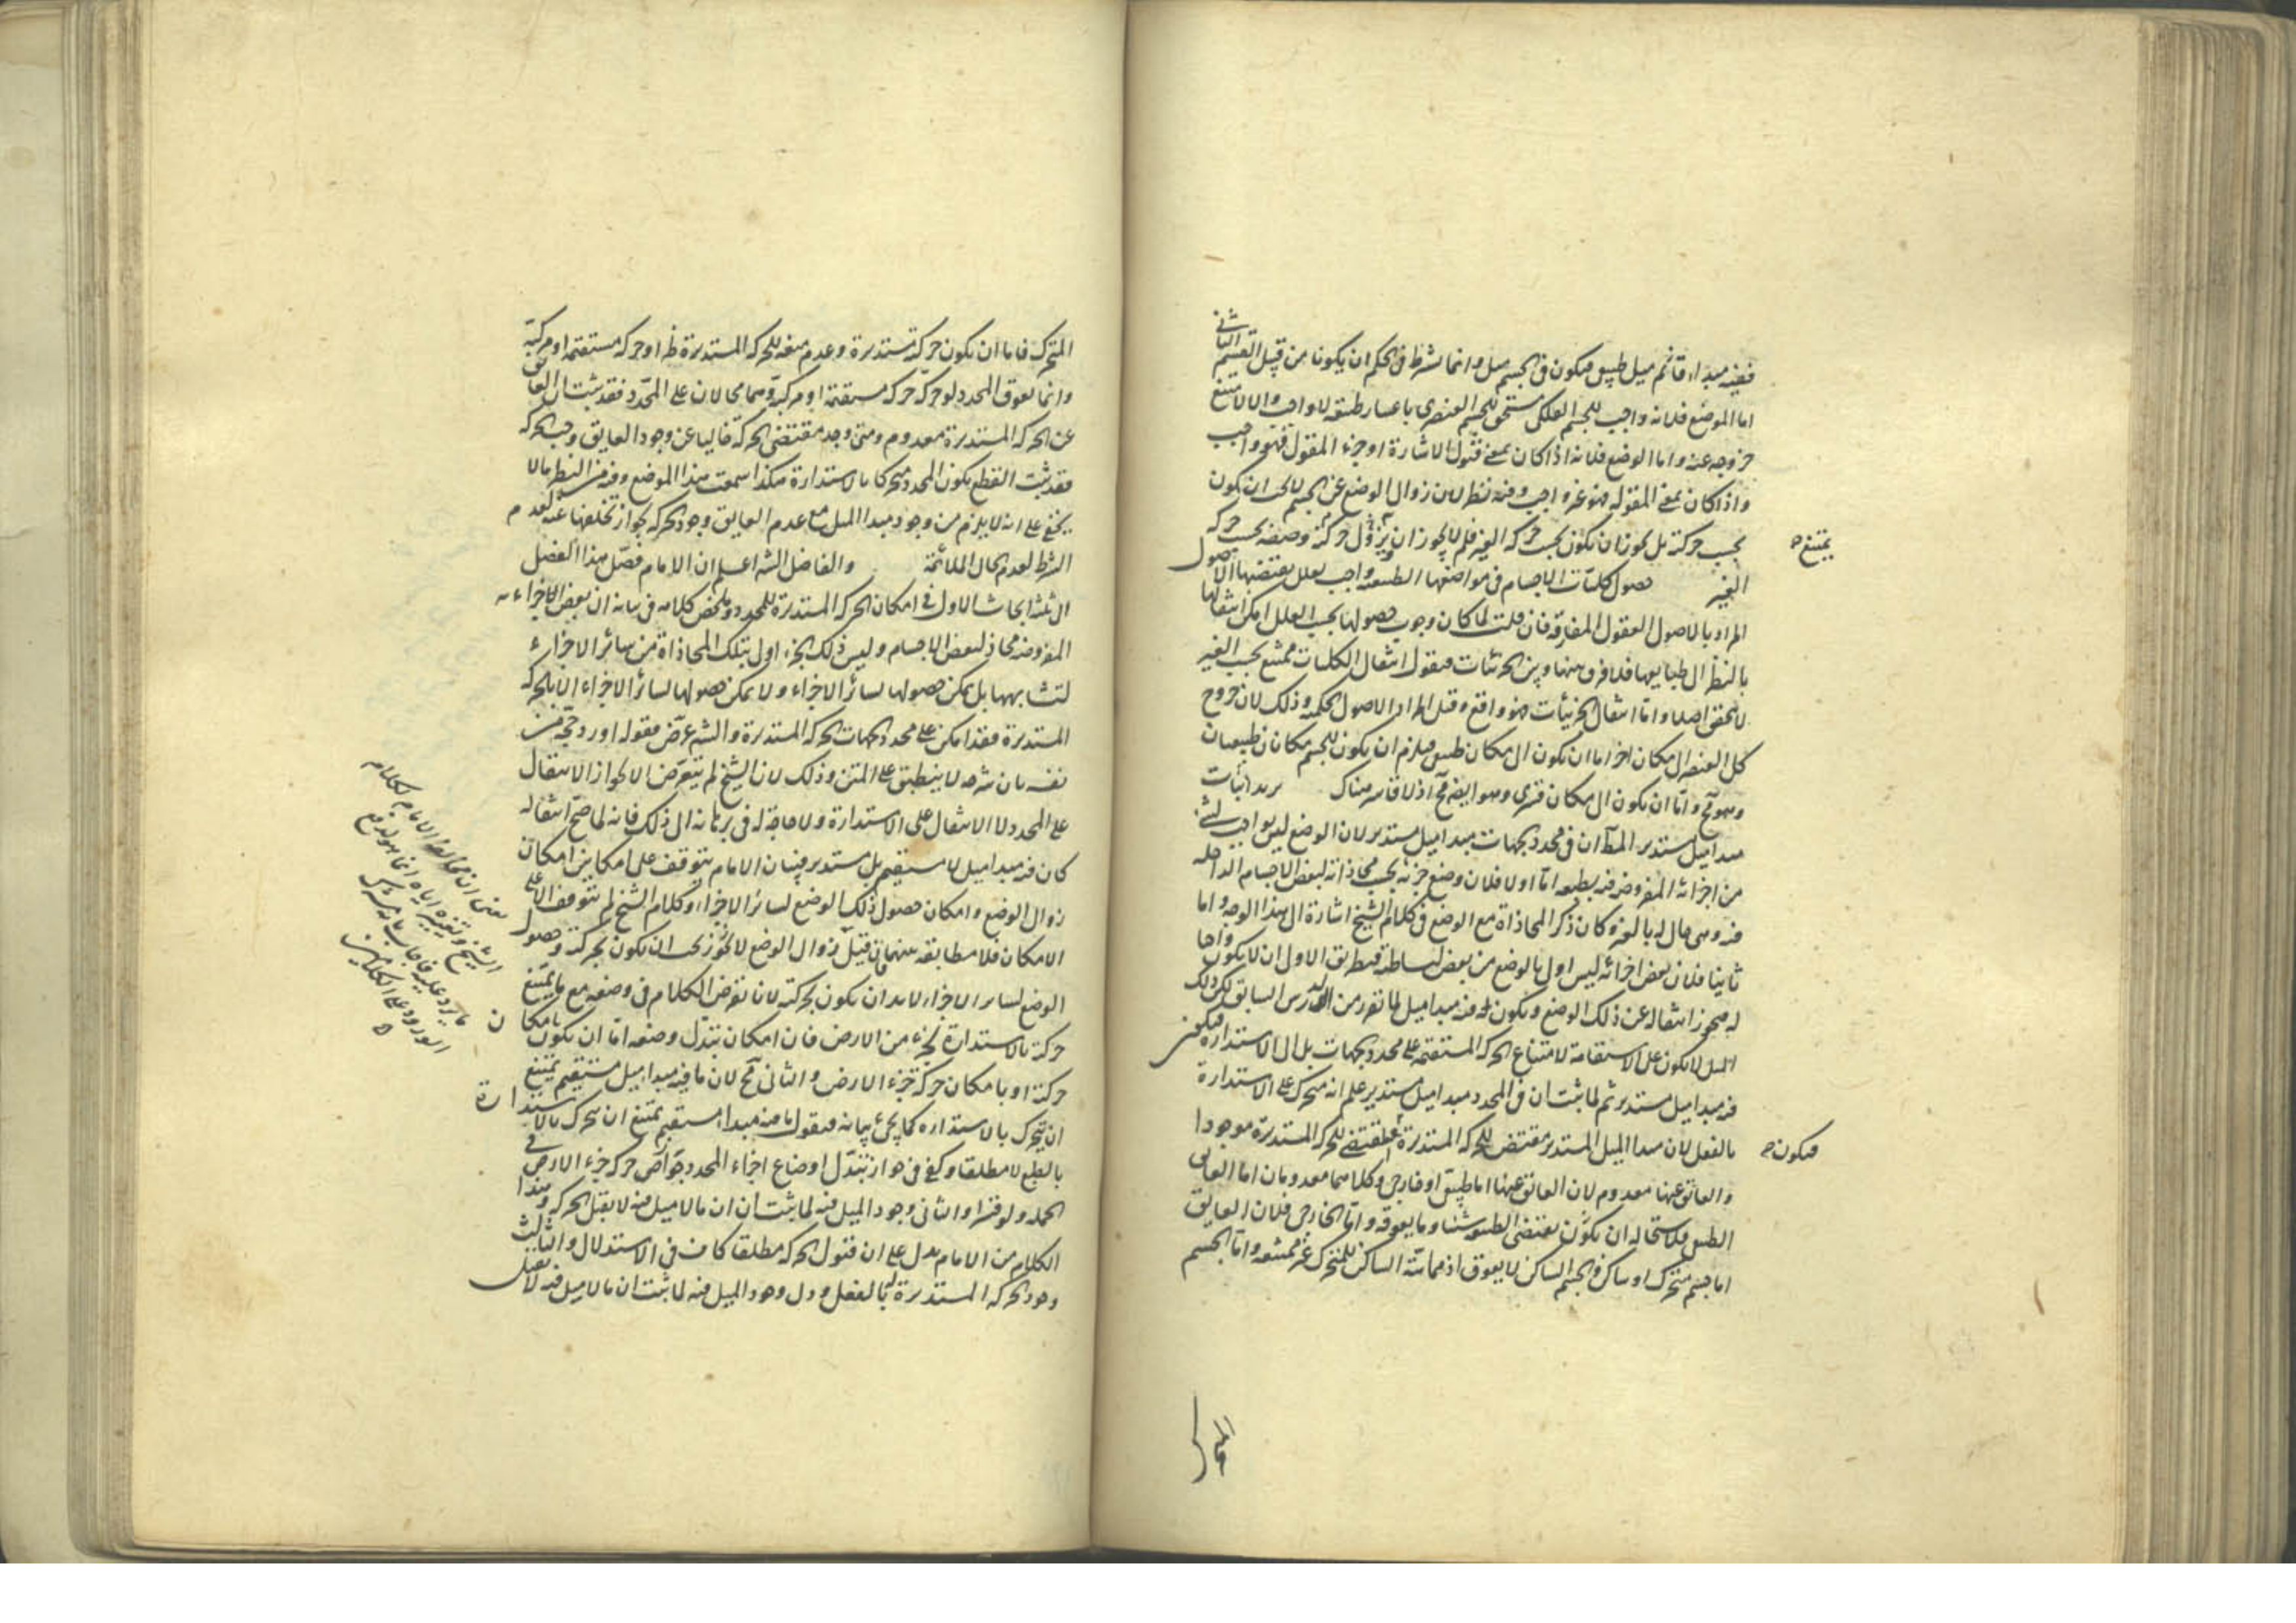 ففيه مبدأ، قائم ميل طبيعي فيكون في الجسم ميل وانما يشترط في الحكم ان يكونا من قبيل القسم الثاني
اما الموضع فلانه واجب للجسم الفلكي مستحق للجسم العنصري باعتبار طبيعته لا واجب والا لامتنع
خروجه عنه واما الوضع فلانه اذا كان بمعنى قبول الاشارة او جزء المقولة فهو واجب
واذا كان بمعنى المقولة فهو غير واجب وفيه نظر لان زوال الوضع عن الجسم لا يجب ان يكون
بحسب حركته بل يجوز ان يكون بحسب حركة الغير فلم لا يجوز ان يزول حركة وضعه بحسب حركة
يمتنع
الغير حصول كليات الاجسام في مواضعها الطبيعية واجب بعلل يقتضيها الاصول
المراد بالاصول العقول المفارقة فان قلت لما كان وجوب حصولها بحسب العلل امكن انتقالها
بالنظر الى طبايعها فلا فرق بينها وبين الجزئيات فنقول انتقال الكليات ممتنع بحسب الغير
لا يتحقق اصلا واما انتقال الجزئيات فهو واقع وقيل المراد الاصول الحكمية وذلك لان خروج
كل العنصر الى مكان اخر اما ان يكون الى مكان طبيعي فيلزم ان يكون للجسم مكانان طبيعيان
وهو مح واما ان يكون الى مكان قسري وهو ايضا مح اذ لا قاسر هناك يريد اثبات
مبدا ميل مستدير المط ان في محدد الجهات مبدا ميل مستدير لان الوضع ليس بواجب لشئ
من اجزائه المفروضة فيه بطبعه اما اولا فلان وضع جزئه بحسب محاذاته لبعض الاجسام الداخلة
فيه وهي حال له بالغير وكان ذكر المحاذاة مع الوضع في كلام الشيخ اشارة الى هذا الوجه واما
ثانيا فلان بعض اجزائه ليس اولى بالوضع من بعض لبساطته فبطريق الاولى ان لا يكون واجبا
له فيجوز انتقاله عن ذلك الوضع ويكون فيه مبدا ميل لما تقرر من الدرس السابق لكن ذلك
الميل لا يكون على الاستقامة لامتناع الحركة المستقيمة على محدد الجهات بل الى الاستدارة فيكون
فيه مبدا ميل مستدير ثم لما ثبت ان في المحدد مبدا ميل مستدير علم انه متحرك على الاستدارة
بالفعل لان مبدا الميل المستدير مقتض للحركة المستديرة فالمقتضي للحركة المستديرة موجودا
فيكون
والعائق عنها معدوم لان العائق عنها اما طبيعي او خارجي وكلاهما معدومان اما العائق
الطبيعي فلاستحالة ان يكون يقتضي الطبيعة شيئا وما يعوقه واما الخارجي فلان العايق
اما جسم متحرك او ساكن والجسم الساكن لا يعوق اذ مماسة الساكن للمتحرك غير ممتنعة واما الجسم
المتحرك
المتحرك فاما ان يكون حركته مستديرة وعدم منعه للحركة المستديرة ظ او حركة مستقيمة او مركبة
وانما يعوق المحدد لو حركه حركة مستقيمة او مركبة وهما محالان على المحدد فقد ثبت ان العائق
عن الحركة المستديرة معدوم ومتى وجد مقتضي الحركة خاليا عن وجود العايق وجب الحركة
فقد ثبت القطع بكون المحدد متحركا بالاستدارة هكذا سمعت هذا الموضع وفيه من النظر ما لا
يخفى على انه لا يلزم من وجود مبدا الميل مع عدم العايق وجود الحركة لجواز تخلفها عنه لعدم
الشرط لعدم الحال الملائمة والفاضل الشه اعلم ان الامام فصل هذا الفصل
الى ثلثة ابحاث الاول في امكان الحركة المستديرة للمحدد وملخص كلامه في بيانه ان بعض الاجزاء
المفروضة محاذ لبعض الاجسام وليس ذلك الجزء اولى بتلك المحاذاة من سائر الاجزاء
لتشابهها بل يمكن حصولها لسائر الاجزاء ولا يمكن حصولها لسائر الاجزاء الا بالحركة
المستديرة فقد امكن على محدد الجهات الحركة المستديرة والشه عرض بقوله اورد حجة من
نفسه بان شرحه لا ينطبق على المتن وذلك لان الشيخ لم يتعرض الا لجواز الانتقال
على المحدد لا الانتقال على الاستدارة ولا حاجة له في برهانه الى ذلك فانه لما صح انتقاله
كان فيه مبدا ميل لا مستقيم بل مستدير فبيان الامام يتوقف على امكانين امكان
زوال الوضع وامكان حصول ذلك الوضع لسائر الاجزاء وكلام الشيخ لم يتوقف الا على
الامكان فلا مطابقة بينهما فان قيل زوال الوضع لا يجوز يجب ان يكون بحركته وحصول
الوضع لسائر الاجزاء لابد ان يكون بحركته لانا نفرض الكلام في وضعه مع ما يمتنع
حركته بالاستدارة كجزء من الارض فان امكان تبدل وضعه اما ان يكون بامكان
حركته او بامكان حركة جزء الارض والثاني مح لان ما فيه مبدا ميل مستقيم يمتنع
ان يتحرك بالاستدارة كما يجئ بيانه فنقول ما فيه مبدا مستقيم يمتنع ان يتحرك بالاستدارة
بالطبع لا مطلقا وكفى في جواز تبدل اوضاع اجزاء المحدد جواز حركة جزء الارض في
الجملة ولو قسرا والثاني وجود الميل فيه لما ثبت ان ما لا ميل فيه لا يقبل الحركة وهذا
الكلام من الامام يدل على ان قبول الحركة مطلقا كاف في الاستدلال والثالث
وجود الحركة المستديرة بالفعل ودل وجود الميل فيه لما ثبت ان ما لا ميل فيه لا يقبل
يعني ان مخالفة الامام لكلام
الشيخ وتغييره اياه انما هو لدفع
ما يرد عليه فاجاب بانه مشترك
الورود على الكلامين